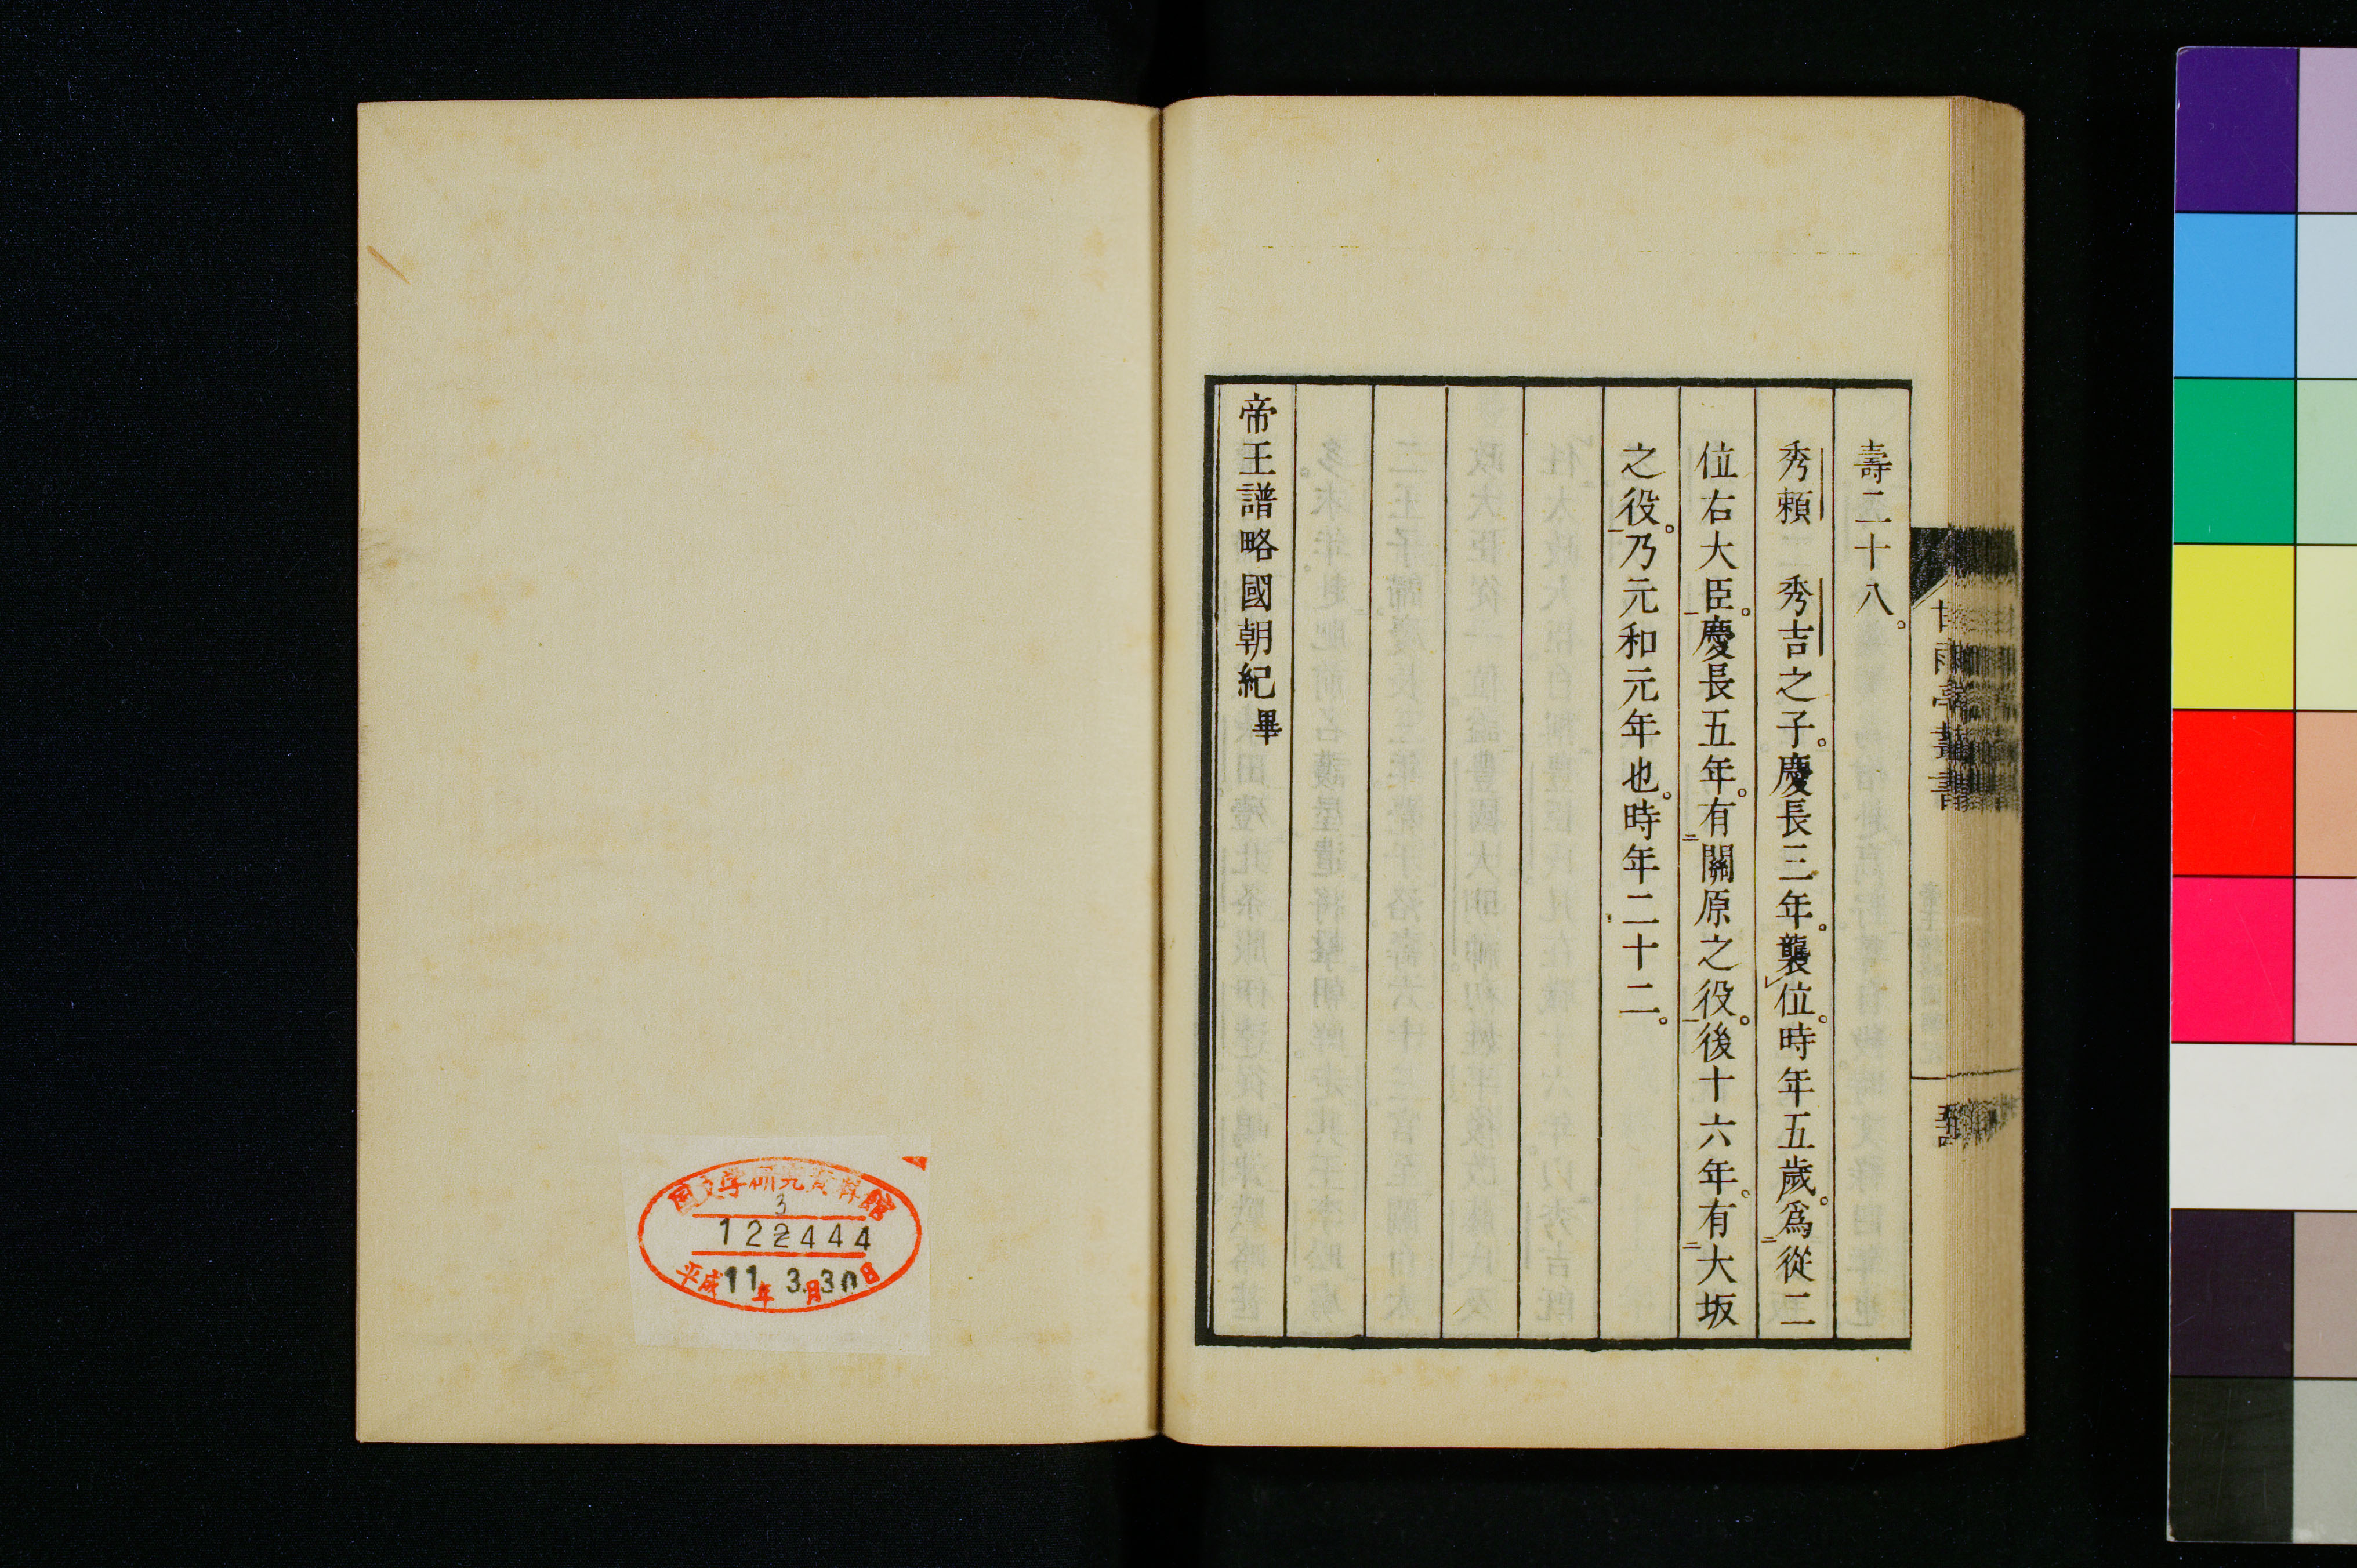 壽二十八。
秀頼　秀吉之子。慶長三年。襲位。時年五歲。爲從二
位右大臣。慶長五年。有關原之役。後十六年。有大坂
之役。乃元和元年也。時年二十二。
帝王譜略國朝紀畢
甘雨亭叢書
国文学研究資料館
3
122444
平成11年3月30日